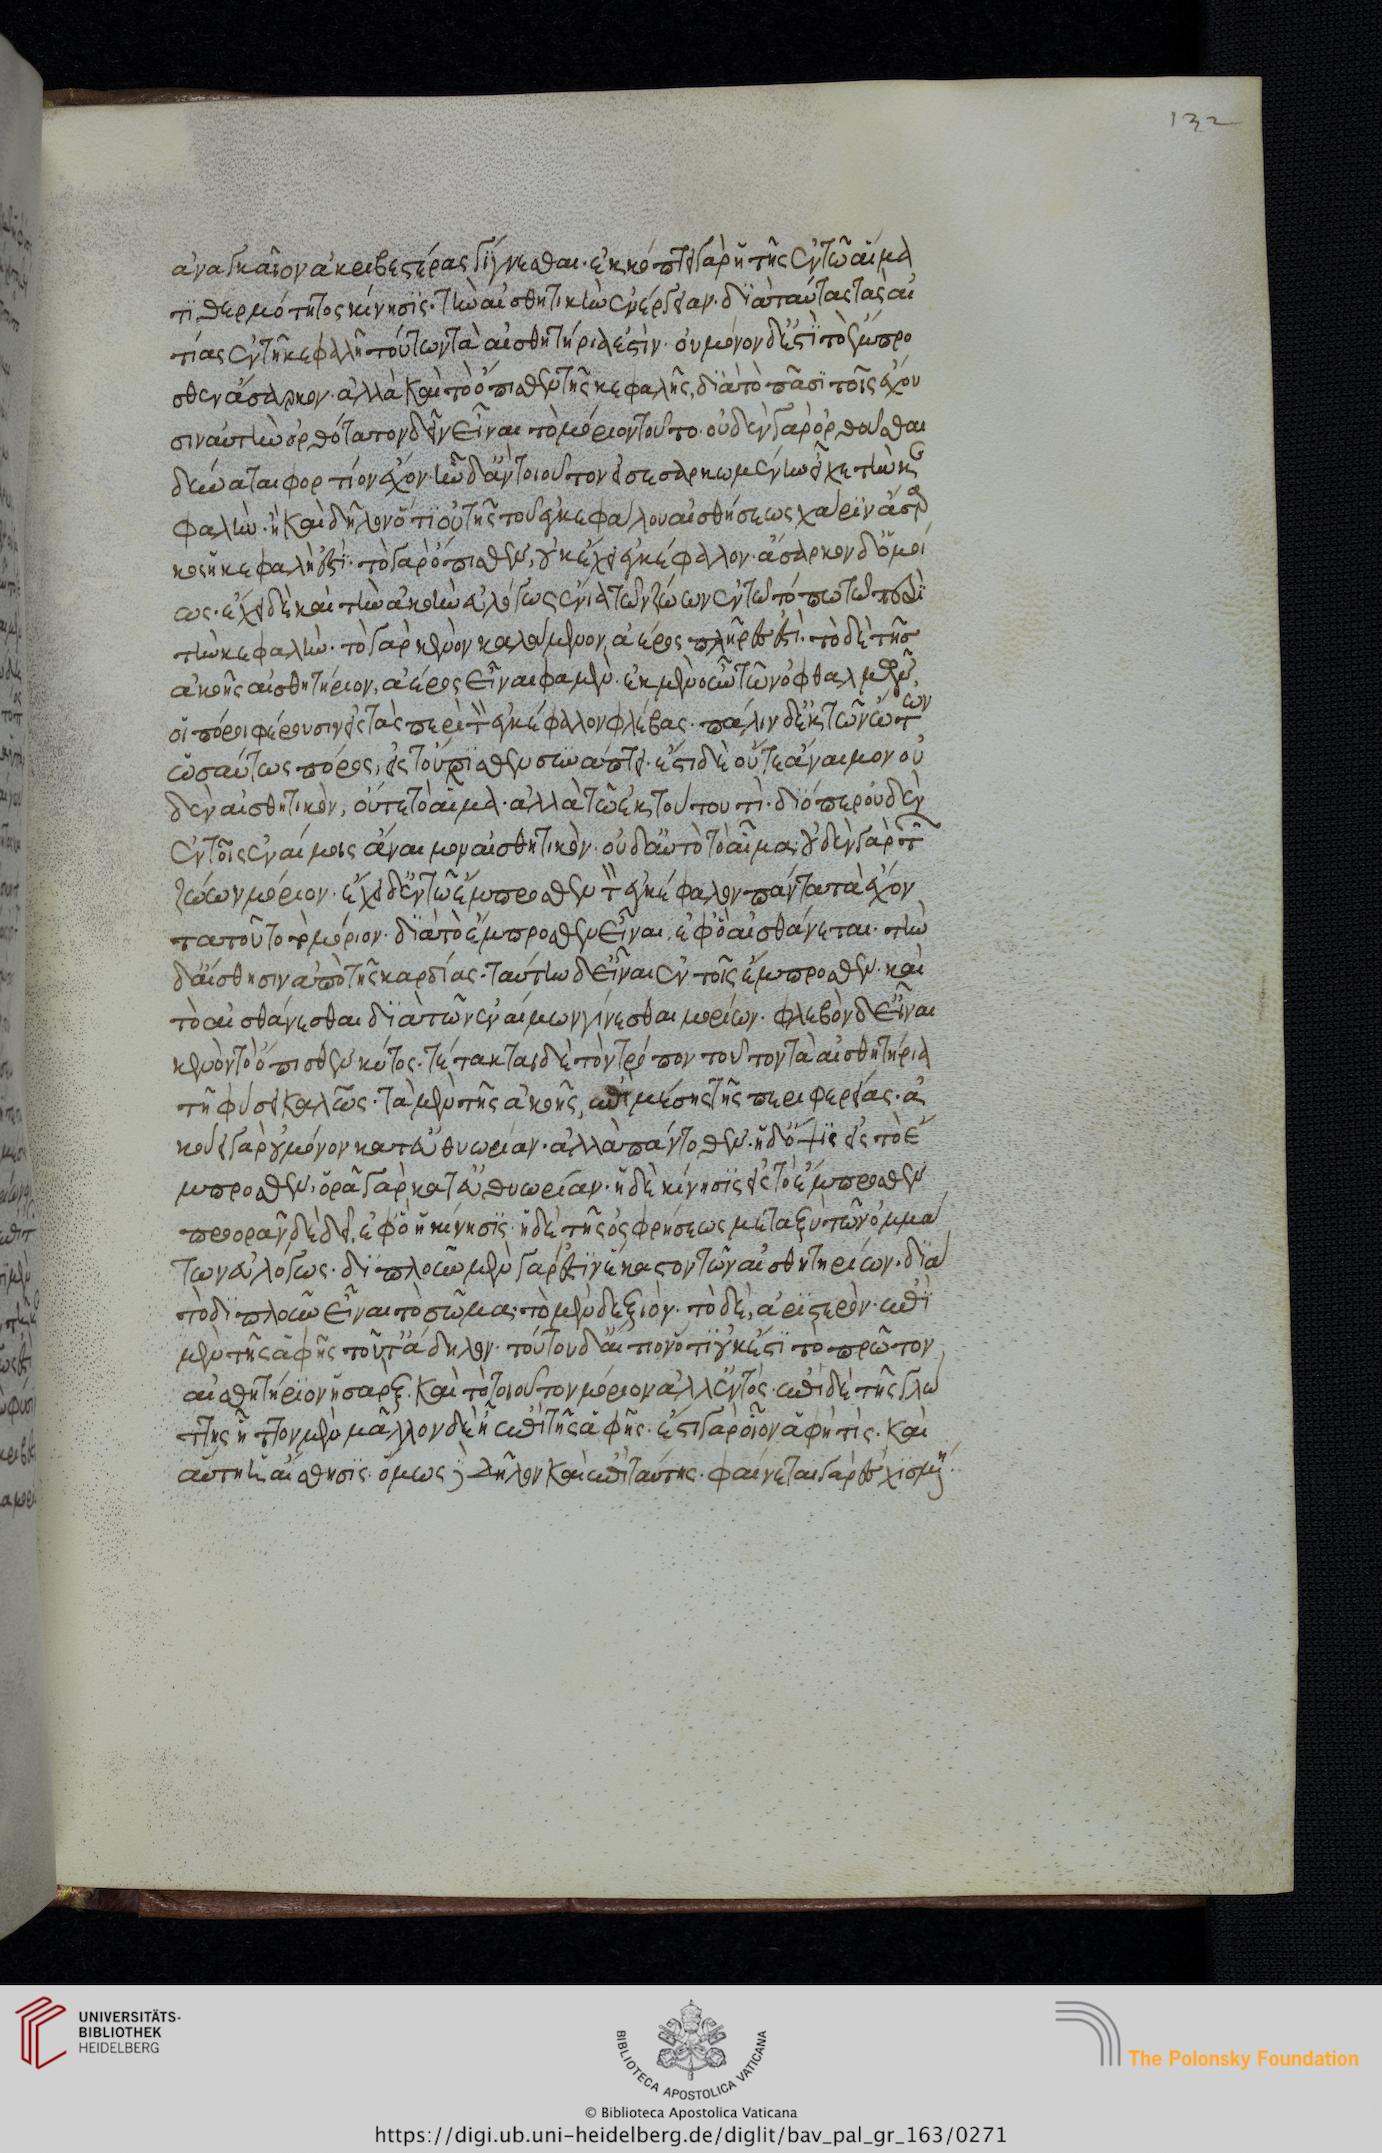 132
ἀναγκαῖον ἀκριβεστέρας γίγνεσθαι· ἐκκόπτει γὰρ ἡ τῆς ἐν τῷ αἵμα
τι θερμότητος κίνησις· τὴν αἰσθητικὴν ἐνέργειαν· διὰ ταύτας τὰς αἰ
τίας ἐν τῇ κεφαλῇ τούτων τὰ αἰσθητήριά ἐστιν· οὐ μόνον δέ ἐστι τὸ ἔμπρο
σθεν ἄσαρκον· ἀλλὰ καὶ τὸ ὄπισθεν τῆς κεφαλῆς, διὰ τὸ πᾶσι τοῖς ἔχου
σιν αὐτὴν ὀρθότατον δεῖν εἶναι τὸ μόριον τοῦτο· οὐδὲν γὰρ ὀρθοῦσθαι
δύναται φορτίον ἔχον· ἦν δ' ἂν τοιοῦτον εἰ σεσαρκωμένην εἶχε τὴν κε
φαλήν· ᾗ καὶ δῆλον ὅτι οὐ τῆς τοῦ ἐγκεφάλου αἰσθήσεως χάριν ἄσαρ
κος ἡ κεφαλή ἐστι· τὸ γὰρ ὄπισθεν, οὐκ ἔχει ἐγκέφαλον· ἄσαρκον δ' ὁμοί
ως· ἔχει δὲ καὶ τὴν ἀκοὴν εὐλόγως ἔνια τῶν ζώων ἐν τῷ τόπῳ τῷ περὶ
τὴν κεφαλήν· τὸ γὰρ κενὸν καλούμενον, ἀέρος πλῆρές ἐστι· τὸ δὲ τῆς
ἀκοῆς αἰσθητήριον, ἀέρος εἶναι φαμέν· ἐκ μὲν οὖν τῶν ὀφθαλμῶν,
οἱ πόροι φέρουσιν εἰς τὰς περὶ τὸν ἐγκέφαλον φλέβας· πάλιν δ' ἐκ τῶν ὤτων
ὡσαύτως πόρος, εἰς τοὔπισθεν συνάπτει· ἔστι δὲ οὔτε ἄναιμον οὐ
δὲν αἰσθητικὸν, οὔτε τὸ αἷμα· ἀλλὰ τῶν ἐκ τούτου τὶ· διόπερ οὐδὲν
ἐν τοῖς ἐναίμοις ἄναιμον αἰσθητικὸν· οὐδ' αὐτὸ τὸ αἷμα· οὐδὲν γὰρ τῶν
ζώων μόριον· ἔχει δ' ἐν τῷ ἔμπροσθεν τὸν ἐγκέφαλον πάντα τὰ ἔχον
τα τοῦτο τὸ μόριον· διὰ τὸ ἔμπροσθεν εἶναι, ἐφ' ὃ αἰσθάνεται· τὴν
δ' αἴσθησιν ἀπὸ τῆς καρδίας· ταύτην δ' εἶναι ἐν τοῖς ἔμπροσθεν· καὶ
τὸ αἰσθάνεσθαι διὰ τῶν ἐναίμων γίνεσθαι μορίων· φλεβῶν δ' εἶναι
κενὸν τὸ ὄπισθεν κύτος· τέτακται δὲ τὸν τρόπον τοῦτον τὰ αἰσθητήρια
τῇ φύσει καλῶς· τὰ μὲν τῆς ἀκοῆς, ἐπὶ μέσης τῆς περιφερείας· ἀ
κούει γὰρ οὐ μόνον κατ' εὐθυωρίαν· ἀλλὰ πάντοθεν· ἡ δ' ὄψις εἰς τὸ ἔ
μπροσθεν· ὁρᾷ γὰρ κατ' εὐθυωρίαν· ἡ δὲ κίνησις εἰς τὸ ἔμπροσθεν
προορᾶν δὲ δεῖ, ἐφ' ὃ ἡ κίνησις· ἡ δὲ τῆς ὀσφρήσεως μεταξὺ τῶν ὀμμά
των εὐλόγως· διπλοῦν μὲν γάρ ἐστιν ἕκαστον τῶν αἰσθητηρίων· διὰ
τὸ διπλοῦν εἶναι τὸ σῶμα· τὸ μὲν δεξιόν· τὸ δὲ, ἀριστερὸν· ἐπὶ
μὲν τῆς ἁφῆς τοῦτ' ἄδηλον· τούτου δ' αἴτιον ὅτι οὐκ ἔστι τὸ πρῶτον
αἰσθητήριον ἡ σάρξ· καὶ τὸ τοιοῦτον μόριον ἀλλ' ἐντός· ἐπὶ δὲ τῆς γλώ
ττης ἧττον μὲν μᾶλλον δὲ ἢ ἐπὶ τῆς ἁφῆς· ἔστι γὰρ οἷον ἁφή τις· καὶ
αὕτη ἡ αἴσθησις· ὅμως δὲ δῆλον καὶ ἐπὶ ταύτης· φαίνεται γὰρ ἐσχισμένη
UNIVERSITÄTS-
BIBLIOTHEK
HEIDELBERG
BIBLIOTECA APOSTOLICA VATICANA
The Polonsky Foundation
© Biblioteca Apostolica Vaticana
https://digi.ub.uni-heidelberg.de/diglit/bav_pal_gr_163/0271